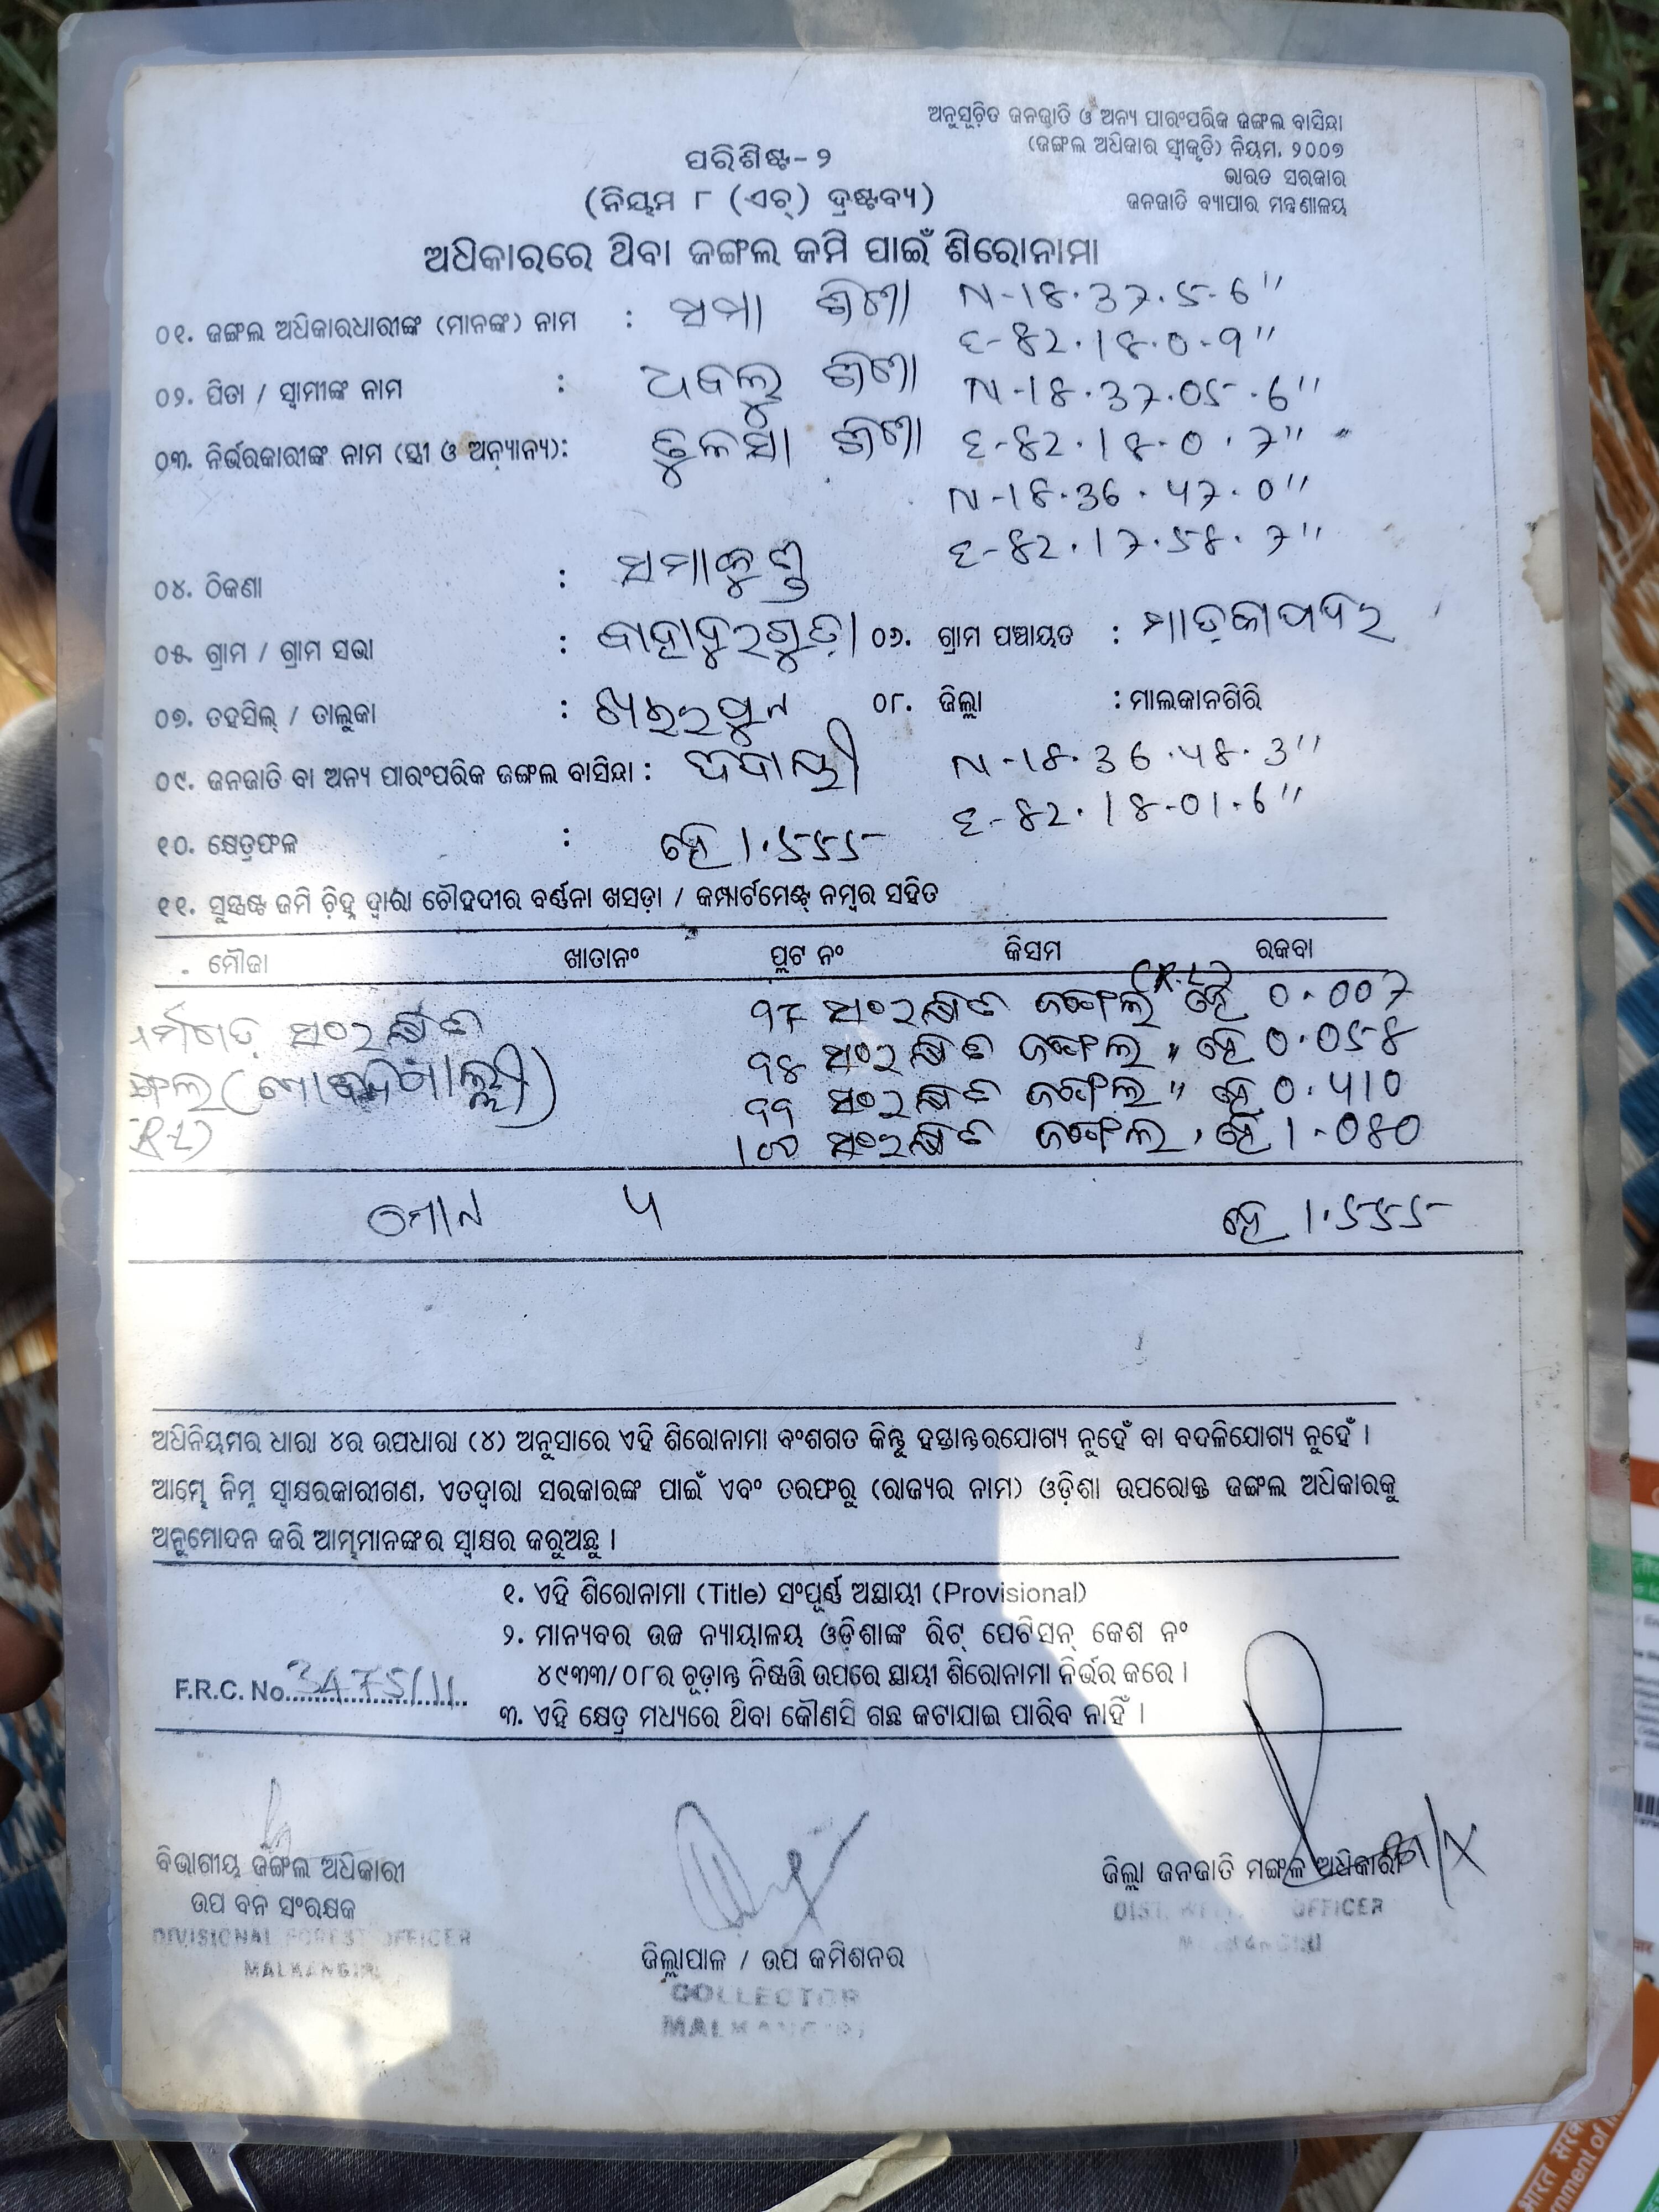 ଅନୁସୂଚିତ ଜନଜାତି ଓ ଅନ୍ୟ ପାରଂପରିକ ଜଙ୍ଗଲ ବାସିନ୍ଦା
(ଜଙ୍ଗଲ ଅଧିକାର ସ୍ୱୀକୃତି) ନିୟମ, ୨୦୦୭
ଭାରତ ସରକାର
ଜନଜାତି ବ୍ୟାପାର ମନ୍ତ୍ରଣାଳୟ
ପରିଶିଷ୍ଟ- ୨
(ନିୟମ ୮ (ଏଚ୍) ଦ୍ରଷ୍ଟବ୍ୟ)
ଅଧିକାରରେ ଥିବା ଜଙ୍ଗଲ ଜମି ପାଇଁ ଶିରୋନାମା
୦୧. ଜଙ୍ଗଲ ଅଧିକାରଧାରୀଙ୍କ (ମାନଙ୍କ) ନାମ :
N-18.37.5-6"
E-82.18.0-9"
୦୨. ପିତା / ସ୍ୱାମୀଙ୍କ ନାମ :
N-18.37.05.6"
୦୩. ନିର୍ଭରକାରୀଙ୍କ ନାମ (ସ୍ତ୍ରୀ ଓ ଅନ୍ୟାନ୍ୟ):
E-82.18.0.7"
N-18.36.47.0"
E-82.17.58.7"
୦୪. ଠିକଣା : ସମାକୁଣ୍ଡ
୦୫. ଗ୍ରାମ / ଗ୍ରାମ ସଭା : ବାହାଦୁରଗୁଡ଼ା ୦୬. ଗ୍ରାମ ପଞ୍ଚାୟତ :
୦୭. ତହସିଲ୍ / ତାଲୁକା : ଖଇରପୁଟ ୦୮. ଜିଲ୍ଲା : ମାଲକାନଗିରି
୦୯. ଜନଜାତି ବା ଅନ୍ୟ ପାରଂପରିକ ଜଙ୍ଗଲ ବାସିନ୍ଦା :
N-18.36.48.3"
E-82.18-01.6"
୧୦. କ୍ଷେତ୍ରଫଳ : ହେ 1.555
୧୧. ସୁସ୍ପଷ୍ଟ ଜମି ଚିହ୍ନ ଦ୍ୱାରା ଚୌହଦୀର ବର୍ଣ୍ଣନା ଖସଡ଼ା / କମ୍ପାର୍ଟମେଣ୍ଟ୍ ନମ୍ବର ସହିତ
ମୌଜା ଖାତାନଂ ପ୍ଲଟ ନଂ କିସମ ରକବା
ସଂରକ୍ଷିତ ସଂରକ୍ଷିତ ଜଙ୍ଗଲ ହେ 0.007
ସଂରକ୍ଷିତ ଜଙ୍ଗଲ " ହେ 0.058
ସଂରକ୍ଷିତ ଜଙ୍ଗଲ " ହେ 0.410
ସଂରକ୍ଷିତ ଜଙ୍ଗଲ " ହେ 1.080
ମୋଟ 4 ହେ 1.555
ଅଧିନିୟମର ଧାରା ୪ର ଉପଧାରା (୪) ଅନୁସାରେ ଏହି ଶିରୋନାମା ବଂଶଗତ କିନ୍ତୁ ହସ୍ତାନ୍ତରଯୋଗ୍ୟ ନୁହେଁ ବା ବଦଳିଯୋଗ୍ୟ ନୁହେଁ ।
ଆମ୍ଭେ ନିମ୍ନ ସ୍ୱାକ୍ଷରକାରୀଗଣ, ଏତଦ୍ୱାରା ସରକାରଙ୍କ ପାଇଁ ଏବଂ ତରଫରୁ (ରାଜ୍ୟର ନାମ) ଓଡ଼ିଶା ଉପରୋକ୍ତ ଜଙ୍ଗଲ ଅଧିକାରକୁ
ଅନୁମୋଦନ କରି ଆମ୍ଭମାନଙ୍କର ସ୍ୱାକ୍ଷର କରୁଅଛୁ ।
୧. ଏହି ଶିରୋନାମା (Title) ସଂପୂର୍ଣ୍ଣ ଅସ୍ଥାୟୀ (Provisional)
୨. ମାନ୍ୟବର ଉଚ୍ଚ ନ୍ୟାୟାଳୟ ଓଡ଼ିଶାଙ୍କ ରିଟ୍ ପେଟିସନ୍ କେଶ ନଂ
୪୯୩୩/୦୮ର ଚୂଡ଼ାନ୍ତ ନିଷ୍ପତ୍ତି ଉପରେ ସ୍ଥାୟୀ ଶିରୋନାମା ନିର୍ଭର କରେ ।
F.R.C. No. 3475/11
୩. ଏହି କ୍ଷେତ୍ର ମଧ୍ୟରେ ଥିବା କୌଣସି ଗଛ କଟାଯାଇ ପାରିବ ନାହିଁ ।
ବିଭାଗୀୟ ଜଙ୍ଗଲ ଅଧିକାରୀ
ଉପ ବନ ସଂରକ୍ଷକ
DIVISIONAL FOREST OFFICER
MALKANGIRI
ଜିଲ୍ଲାପାଳ / ଉପ କମିଶନର
COLLECTOR
MALKANGIRI
ଜିଲ୍ଲା ଜନଜାତି ମଙ୍ଗଳ ଅଧିକାରୀ
DIST. OFFICER
भारत सरकार